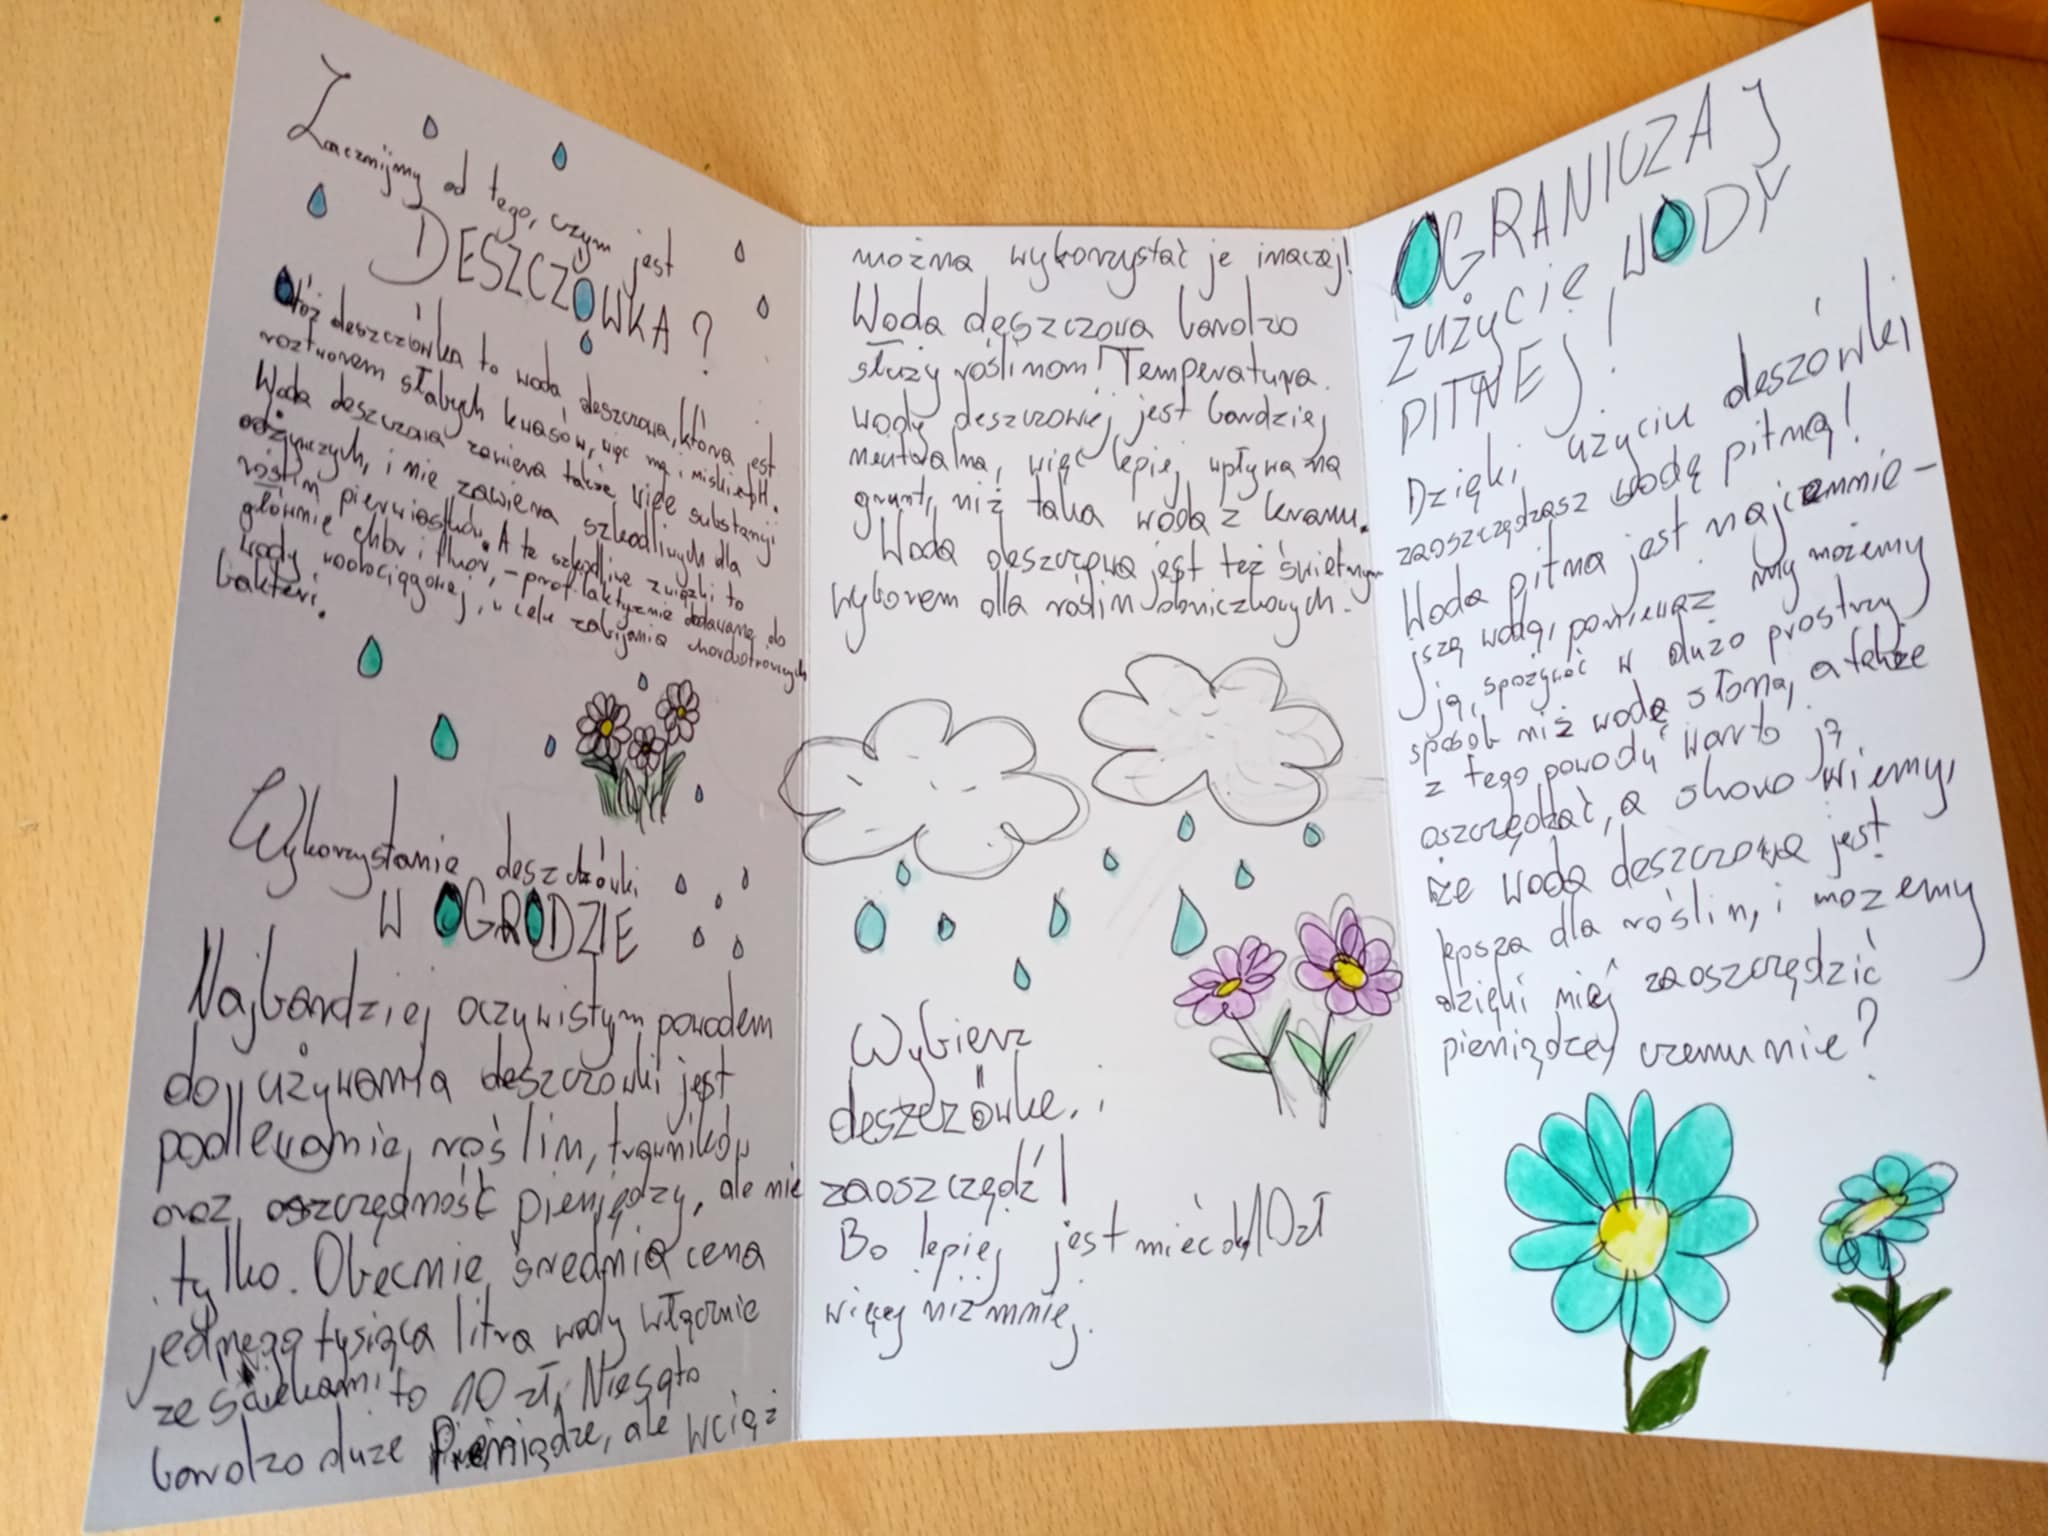 Zacznijmy od tego, czym jest
DESZCZÓWKA?
Otóż deszczówka to woda deszczowa, która jest
roztworem słabych kwasów, więc ma niskie pH.
Woda deszczowa zawiera także wiele substancji
odżywczych, i nie zawiera szkodliwych dla
roślin pierwiastków. A te szkodliwe związki to
głównie chlor i fluor, - profilaktycznie dodawane do
wody wodociągowej, w celu zabijania chorobotwórczych
bakterii.
Wykorzystanie deszczówki
W OGRODZIE
Najbardziej oczywistym powodem
do używania deszczówki jest
podlewanie roślin, trawników
oraz oszczędność pieniędzy, ale nie
tylko. Obecnie średnia cena
jednego tysiąca litra wody włącznie
ze ściekami to 10 zł. Nie są to
bardzo duże pieniądze, ale wciąż
można wykorzystać je inaczej!
Woda deszczowa bardzo
służy roślinom! Temperatura
wody deszczowej jest bardziej
neutralna, więc lepiej wpływa na
grunt, niż taka woda z kranu.
Woda deszczowa jest też świetnym
wyborem dla roślin doniczkowych.
Wybierz
deszczówkę..
zaoszczędź!
Bo lepiej jest mieć o 10 zł
więcej niż mniej.
OGRANICZAJ
zużycie WODY
PITNEJ!
Dzięki użyciu deszówki
zaoszczędzasz wodę pitną!
Woda pitna jest najcenniej-
jszą wodą, ponieważ my możemy
ją spożywać w dużo prostrzy
sposób niż wodę słoną, a także
z tego powodu warto ją
oszczędzać, a skoro wiemy,
że woda deszczowa jest
lepsza dla roślin, i możemy
dzięki niej zaoszczędzić
pieniądze, czemu nie?